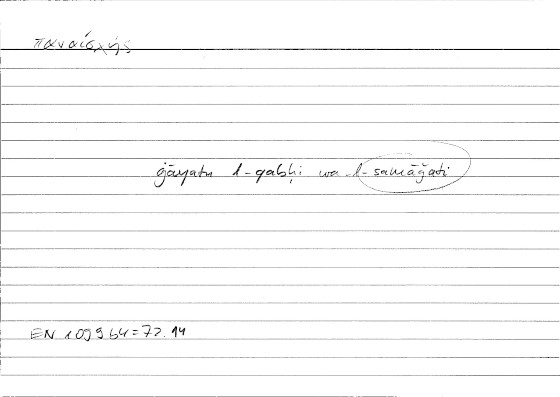 παναίσχης
ġāyatu l-qabḥi wa-l-samāǧati
EN 1099b4=72.14